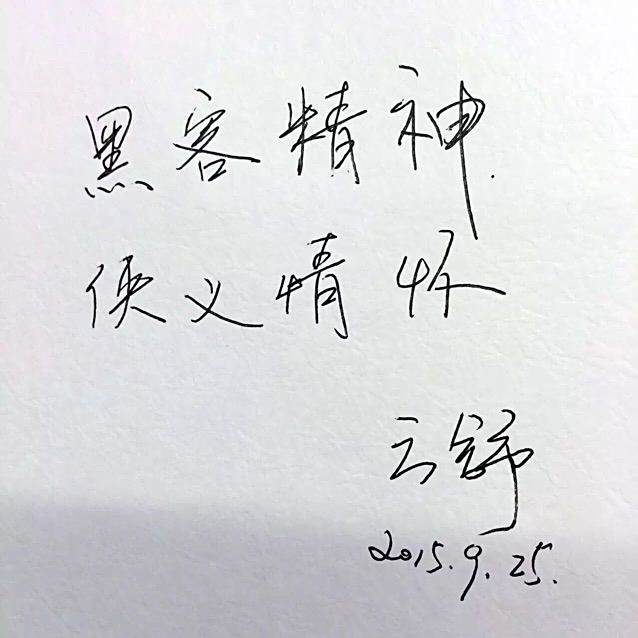 黑客精神.
侠义情怀
云舒
2015.9.25.